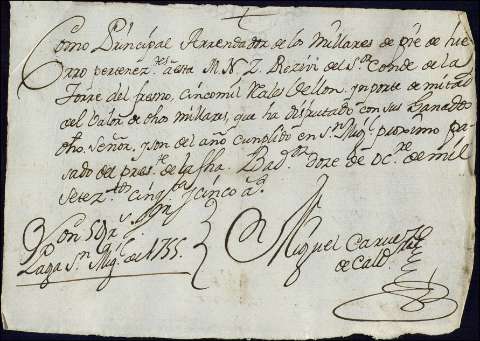 Como Principal Arrendador de los Millares de pie de hie
rro pertenez.tes a esta M. N. Z. Rezivi del S.or Conde de la
Torre del fresno, cinco mil Reales Vellon, ymporte de mitad
del Valor de dhos millares, que ha disfrutado con sus Ganados
dho. Señor, y son del año cumplido en S.n Mig.l proximo pa
sado del pres.te de la fha. Bad.oz doze de Dc.re de mil
Setez.tos Cinq.ta y Cinco a.s
Son 5U r.s
Paga S.n Mig.l de 1755.
Miguel
de